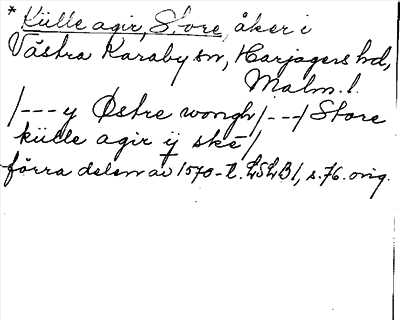 * Külle agir, Store, åker i
Västra Karaby sn, Harjagers hd,
Malm. l.
/--- y Østre wongh /---/ Store
külle agir ij ske /
förra delen av 1570-t. LSLB1, s. 76. orig.